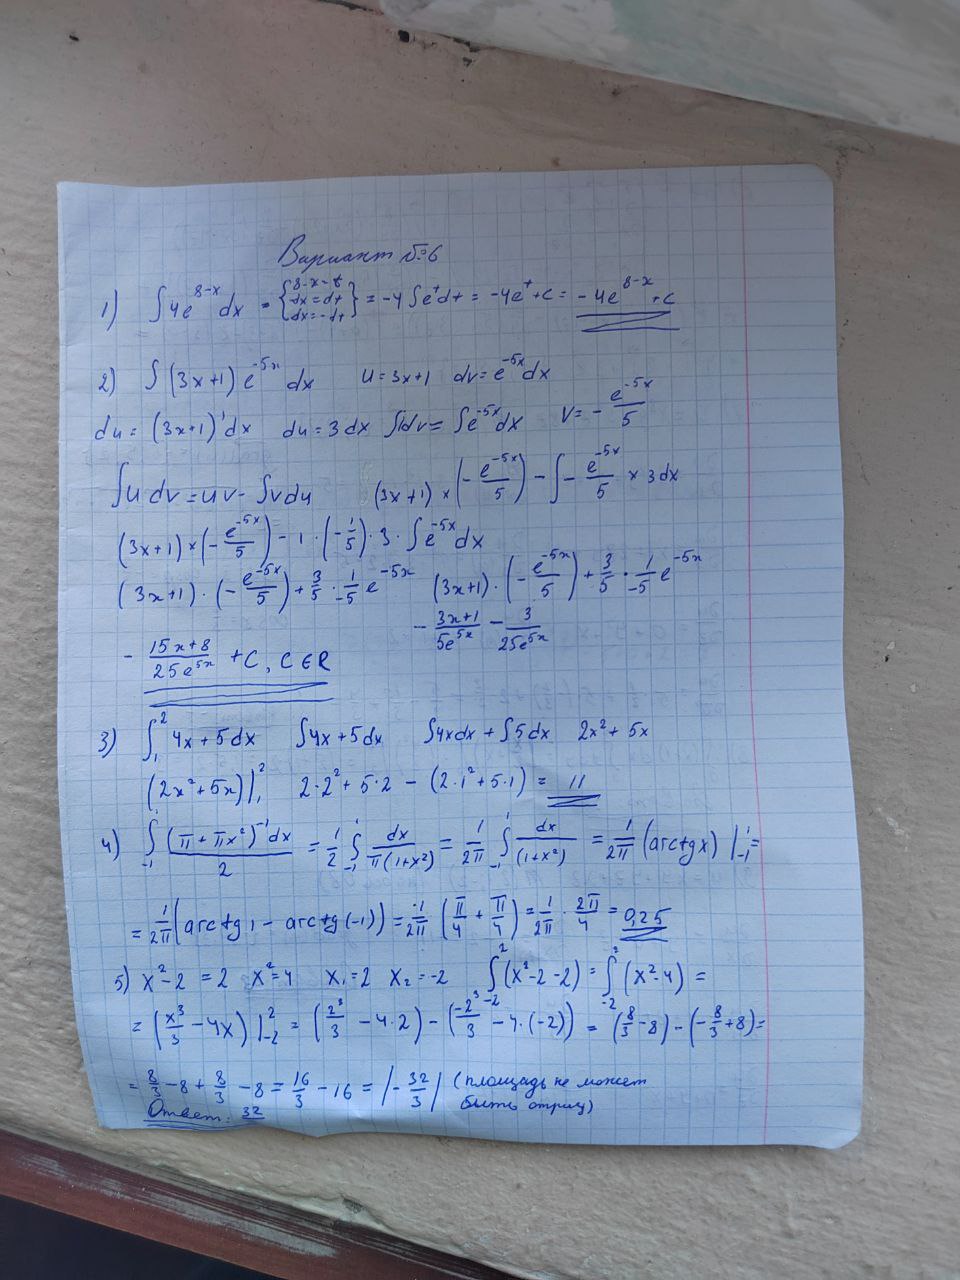 Вариант №6
1) ∫4e^{8-x} dx = {8-x=t dx=dt dx=-dt} = -4∫e^t dt = -4e^t+c = -4e^{8-x}+c
2) ∫(3x+1) e^{-5x} dx u=3x+1 dv=e^{-5x}dx
du=(3x+1)'dx du=3dx ∫dv=∫e^{-5x}dx v=-e^{-5x}/5
∫u dv=uv-∫vdu (3x+1)×(-e^{-5x}/5)-∫-e^{-5x}/5 × 3dx
(3x+1)×(-e^{-5x}/5)-1·(-1/5)·3·∫e^{-5x}dx
(3x+1)·(-e^{-5x}/5)+3/5·1/-5 e^{-5x} (3x+1)·(-e^{-5x}/5)+3/5·1/-5 e^{-5x}
-3x+1/5e^{5x} - 3/25e^{5x}
-15x+8/25e^{5x} +C, C∈R
3) ∫_1^2 4x+5dx ∫4x+5dx ∫4xdx+∫5dx 2x²+5x
(2x²+5x)|_1^2 2·2²+5·2-(2·1²+5·1)=11
4) ∫_{-1}^1 (π+πx²)^{-1}dx/2 = 1/2 ∫_{-1}^1 dx/π(1+x²) = 1/2π ∫_{-1}^1 dx/(1+x²) = 1/2π (arctgx)|_{-1}^1 =
= 1/2π(arctg1-arctg(-1)) = 1/2π (π/4+π/4) = 1/2π · 2π/4 = 0,25
5) x²-2=2 x²=4 x₁=2 x₂=-2 ∫_{-2}^2 (x²-2-2)= ∫_{-2}^2 (x²-4) =
= (x³/3-4x)|_{-2}^2 = (2³/3-4·2)-(-2³/3-4·(-2)) = (8/3-8)-(-8/3+8)=
= 8/3-8+8/3-8=16/3-16=|-32/3| (площадь не может
быть отриц)
Ответ: 32